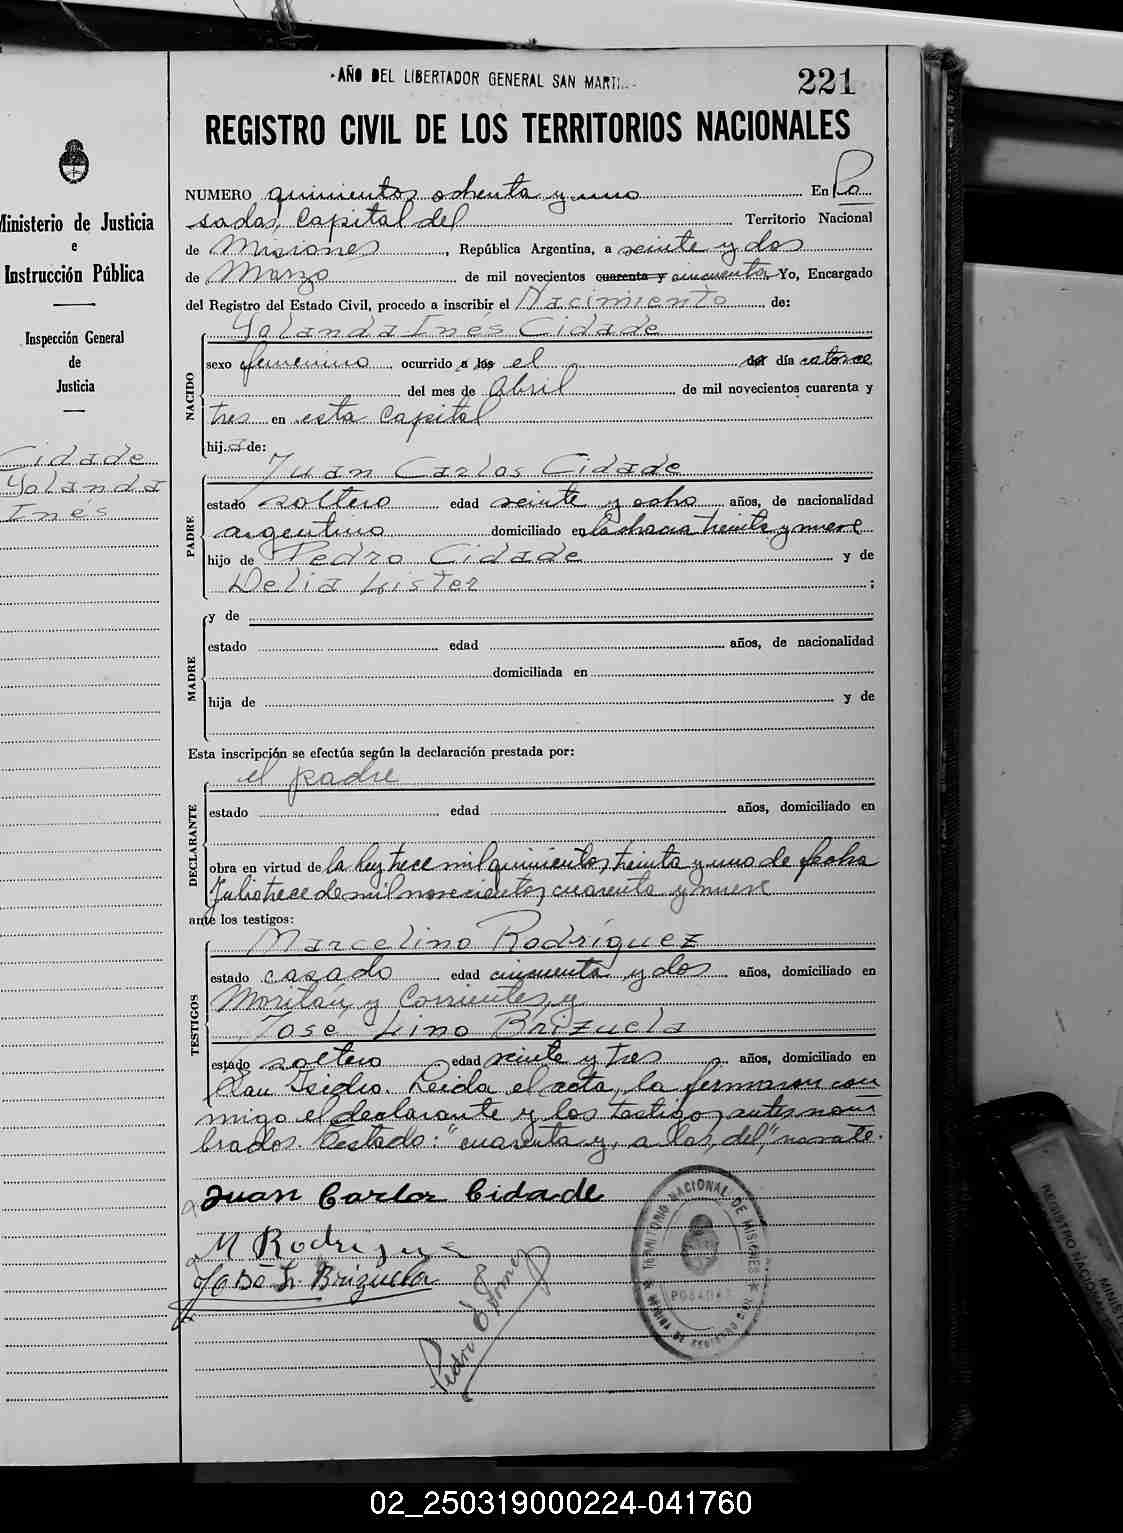 AÑO DEL LIBERTADOR GENERAL SAN MARTI
221
REGISTRO CIVIL DE LOS TERRITORIOS NACIONALES
Ministerio de Justicia
e
Instrucción Pública
Inspección General
de
Justicia
Cidade
Yolanda
Inés
NUMERO quinientos ochenta y uno En Po
sadas, Capital del Territorio Nacional
de Misiones, República Argentina, a veinte y dos
de Marzo de mil novecientos cuarenta y cincuenta, Yo, Encargado
del Registro del Estado Civil, procedo a inscribir el Nacimiento de:
NACIDO
Yolanda Inés Cidade
sexo femenino, ocurrido a las el del día catorce
del mes de Abril de mil novecientos cuarenta y
tres en esta Capital
hij a de:
PADRE
Juan Carlos Cidade
estado soltero edad veinte y ocho años, de nacionalidad
argentino domiciliado en la chacra treinta y nueve
hijo de Pedro Cidade y de
Delia Lister ;
MADRE
y de
estado edad años, de nacionalidad
domiciliada en
hija de y de
Esta inscripción se efectúa según la declaración prestada por:
DECLARANTE
el padre
estado edad años, domiciliado en
obra en virtud de la ley trece mil quinientos treinta y uno de fecha
Julio trece de mil novecientos cuarenta y nueve
ante los testigos:
TESTIGOS
Marcelino Rodríguez
estado casado edad cincuenta y dos años, domiciliado en
y Corrientes, y
José Lino Brizuela
estado soltero edad veinte y tres años, domiciliado en
San Isidro. Leida el acta, la firmaron con
migo el declarante y los testigos antes nom
brados. Testado: "cuarenta y, a las, del," no vale.
Juan Carlos Cidade
M Rodriguez
José L. Brizuela
Pedro
TERRITORIO NACIONAL DE MISIONES
POSADAS
REGISTRO NACIONAL
MINIST
02_250319000224-041760